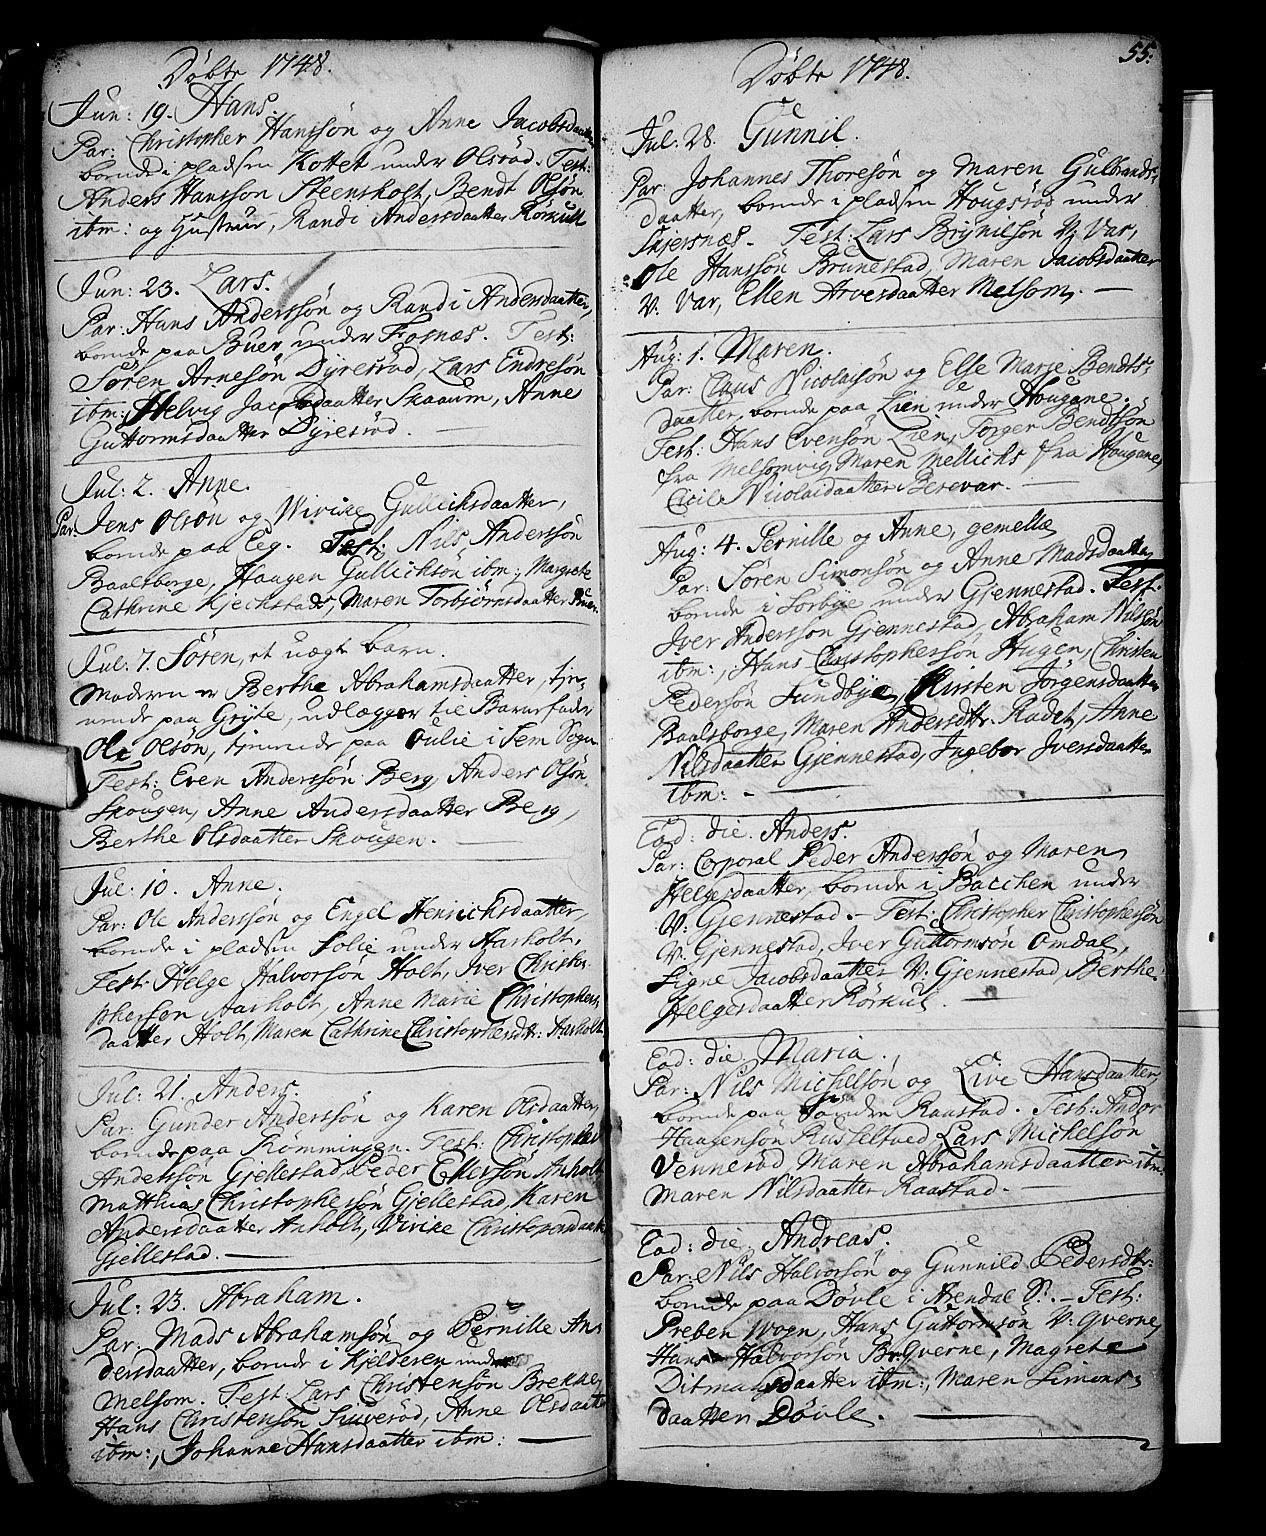 Döbte 1748.
Jun: 19. Hans.
Par: Christopher Hanssön og Anne Jacobsdaatter
boende i pladsen Kottet under Olsröd. Test:
Anders Hanssön Steensholt, Bendt Olsön
ibm: og Hustrue, Randi Andersdaatter Rörkull
Jun: 23. Lars.
Par: Hans Anderssön og Randi Andersdaatter,
boende paa Buer under Fossnæs. Test:
Sören Arnesön Dyresröd, Lars Endresön
ibm: Helvig Jacobsdaatter Skaaum, Anne
Guttormsdaatter Dyresröd.
Jul: 2. Anne.
Par: Jens Olsön og Wivike Gullichsdaatter,
boende paa Eeg. Test: Nils Anderssön
Baalsborge, Haagen Gullichsön ibm; Margrete
Cathrine Kjechstads, Maren Torbjörnsdaatter
Jul: 7. Sören, et uægt barn.
Moderen er Berthe Abrahamsdaatter, tje-
nende paa Gryte, udlægger til Barnefader
Ole Olsön, tjenende paa Oulie i Sem Sogn
Test: Even Anderssön Berg, Anders Olsön
Skougen, Anne Andersdaatter Berg,
Berthe Olsdaatter Skougen.
Jul: 10. Anne.
Par: Ole Anderssön og Engel Henrichsdaatter,
boende i pladsen Solie under Aarholt.
Test: Helge Halvorsön Holt, Iver Christo-
phersön Aarholt, Anne Marie Christophers
daatter Holt, Maren Cathrine Christophersdtr: Aarholt
Jul: 21. Anders.
Par: Gunder Anderssön og Karen Olsdaatter,
boende paa Römmingen. Test: Christopher
Anderssön Gjellestad, Peder Ellefsön Anholt
Matthias Christophersön Gjellestad, Karen
Andersdaatter Anholt, Vivike Christophersdaatter
Gjellestad.
Jul: 23. Abraham.
Par: Mads Abrahamsön og Pernille An-
dersdaatter, boende i Kjelderen under
Melsom. Test: Lars Christensön Brekke,
Hans Christensön Siuveröd, Anne Olsdaatter
ibm:, Johanne Hansdaatter ibm:
Döbte 1748.
55.
Jul: 28. Gunnil.
Par: Johannes Thoresön og Maren Gulbrands-
daatter, boende i pladsen Hougsröd under
Skjersnæs. Test: Lars Brynilsön N: Var,
Ole Hanssön Brunestad, Maren Jacobsdaatter
N: Var, Ellen Arvesdaatter Melsom.
Aug: 1. Maren.
Par: Claus Nicolaisön og Else Marje Bendts-
daatter, boende paa Lien under Hougane.
Test: Hans Evensön Lien, Torger Bendtsön
fra Melsomvig, Maren Mellichs fra Hougane,
Cicile Nicolaidaatter Berevar.
Aug: 4. Pernille og Anne, gemellæ
Par: Sören Simonsön og Anne Madsdaatter
boende i Sorbye under Gjennestad. Test:
Iver Anderssön Gjennestad, Abraham Nilssön
ibm:, Hans Christophersön Hugen, Christen
Pedersön Sundbye, Kirsten Jörgensdaatter
Baalsborge, Maren Andersdtr. Rödet, Anne
Nilsdaatter Gjennestad, Ingebor Iversdaatter
ibm: -
Eod: die. Anders.
Par: Corporal Peder Anderssön og Maren
Helgesdaatter, boende i Bacchen under
N: Gjennestad. - Test: Christopher Christophersön
N: Gjennestad, Iver Guttormsön Omdal,
Signe Jacobsdaatter N: Gjennestad, Berthe
Helgesdaatter Rörkul.
Eod: die. Maria.
Par: Nils Michelsön og Live Hansdaatter,
boende paa Söndre Raastad. Test: Andor
Haagensön Russelstved, Lars Michelsön
Venneröd, Maren Abrahamsdaatter ibm:
Maren Nilsdaatter Raastad.
Eod: die. Andreas.
Par: Nils Halvorsön og Gunnild Pedersdtr:
boende paa Dövle i Arendal S: - Test:
Preben Wogn, Hans Guttormsön N: Qverne,
Hans Halvorsön Br:Qverne, Magrete
Ditmansdaatter ibm:, Maren Simons-
daatter Dövle.